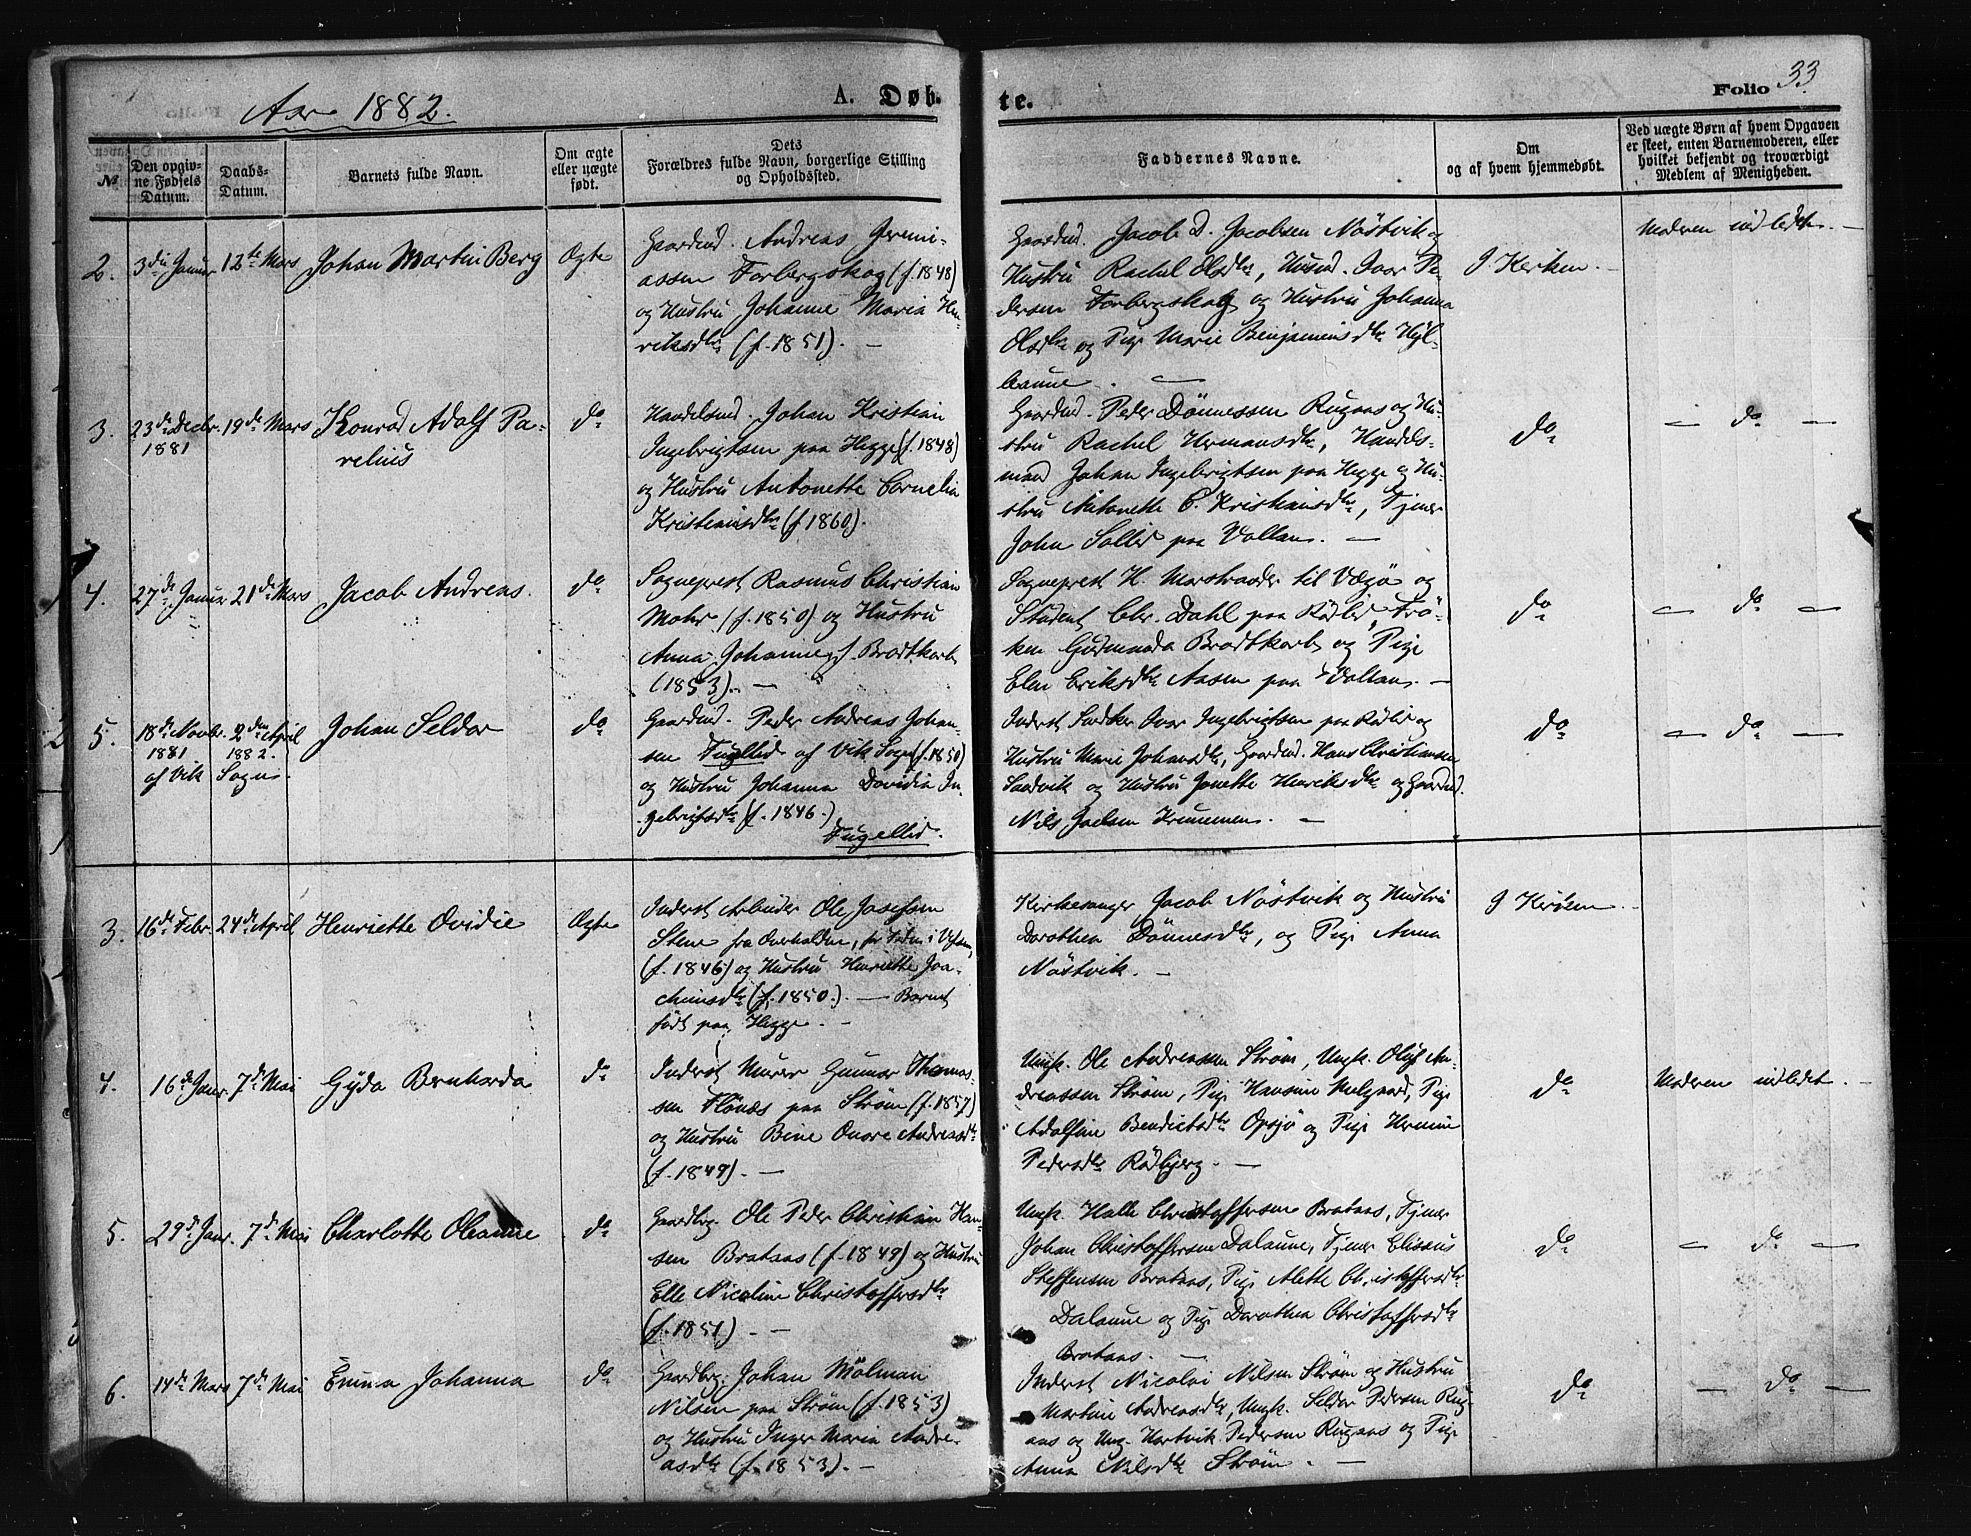 Aar 1882.
A. Døb-
te.
Folio 33
№
Den opgiv-
ne Fødsels
Datum.
Daabs-
Datum.
Barnets fulde Navn.
Om ægte
eller uægte
født.
Dets
Forældres fulde Navn, borgerlige Stilling
og Opholdssted.
Faddernes Navne.
Om
og af hvem hjemmedøbt.
Ved uægte Børn af hvem Opgaven
er skeet, enten Barnemoderen, eller
hvilket bekjendt og troværdigt
Medlem af Menigheden.
2.
3die Januar
12te Mars
Johan Martin Berg
Ægte
Gaardmd. Andreas Jeremi-
assen Forbergskog (f. 1848)
og Hustru Johanne Maria Hen-
riksdtr (f. 1851). —
Gaardmd. Jacob D. Jacobsen Nöstvik og
Hustru Rachel Olsdtr, Husmd. Ivar Pe-
dersen Forbergskog og Hustru Johanna
Olsdtr og Pige Marie Benjaminsdtr
I Kirken.
Moderen indledet. —
3.
23de Decbr.
1881
19de Mars
Konrad Adolf Pa-
relius
do
Handelsmd. Johan Kristian
Ingebrigtsen paa Hegge (f. 1848)
og Hustru Antonette Cornelia
Kristiansdtr (f. 1860).
Gaardmd. Peder Dönnessen Rugaas og Hu-
stru Rachel Hermansdtr, Handels-
mand Johan Ingebrigtsen paa Hegge og Hu-
stru Antonette C. Kristiansdtr, Tjener
John Sollid paa Vollan. —
do
— do —
4.
27de Januar
21de Mars
Jacob Andreas.
do
Sogneprest Rasmus Christian
Mohr (f. 1850) og Hustru
Anna Johanne f. Brodtkorb
(1853). —
Sogneprest H. Marstrander til Vægö og
Student Chr. Dahl paa Rödlid, Frö-
ken Gudmunda Brodtkorb og Pige
Elen Eriksdtr Aasen paa Vollan. —
do
— do —
5.
18de Novbr.
1881
af Vik
2den April
1882.
Sogn.
Johan Seldor
do
Gaardmd. Peder Andreas Johan-
sen Fugellid af Vik Sogn (f. 1850)
og Hustru Johanna Davidia In-
gebrigtsdtr (f. 1846.)
Fugellid.
Inderst Ivar Ingebrigtsen paa Rödlid og
Hustru Marie Johansdtr, Gaardmd. Hans Christiansen
Sandvik og Hustru Jonette Henriksdtr og Gaardmd.
Nils Joelsen Krummen. —
do
— do —
3.
16de Febr.
24de April
Henriette Ovidie
Ægte
Inderst Arbeider Ole Josefsen
Stene fra Overhalden,
(f. 1846) og Hustru Henriette Joa-
chimsdtr (f. 1850.). — Barnet
födt paa Hegge. —
Kirkesanger Jacob Nöstvik og Hustru
Dorothea Dönnesdtr, og Pige Anna
Nöstvik. —
I Kirken.
4.
16de Janr.
7de Mai
Gyda Bernharda
do
Inderst Murer Gunnar Thomas-
sen Flönæs paa Ström (f. 1857)
og Hustru Bine Onore Andreasdtr
(f. 1849). —
Ungk. Ole Andreassen Ström, Ungk. Oluf An-
dreassen Ström, Pige Hansine Melgaard, Pige
Adolfine Benediktsdtr Opsjö og Pige Hermine
Pedersdtr Rödbjerg. —
do
Moderen indledet. —
5.
29de Janr.
7de Mai
Charlotte Oleanne
do
Gaardbrg. Ole Peder Christian Han-
sen Brataas (f. 1849) og Hustru
Elle Nicoline Christoffersdtr
(f. 1851). —
Ungk. Halle Christoffersen Brataas, Tjener
Johan Christoffersen Dalaune, Tjener Elisæus
Steffensen Brataas, Pige Alette Christoffersdtr
Dalaune og Pige Dorothea Christoffersdtr
Brataas. —
do
— do —
6.
14de Mars
7de Mai
Emma Johanna
do
Gaardbrg. Johan Mölman
Nilsen paa Ström (f. 1853)
og Hustru Inger Maria Andre-
asdtr (f. 1853). —
Inderst Nicolai Nilsen Ström og Hustru
Martine Andreasdtr, Ungk. Seldor Pedersen Rug-
aas og Ung. Hartvik Pedersen Rugaas og Pige
Anna Nilsdtr Ström. —
do
— do —